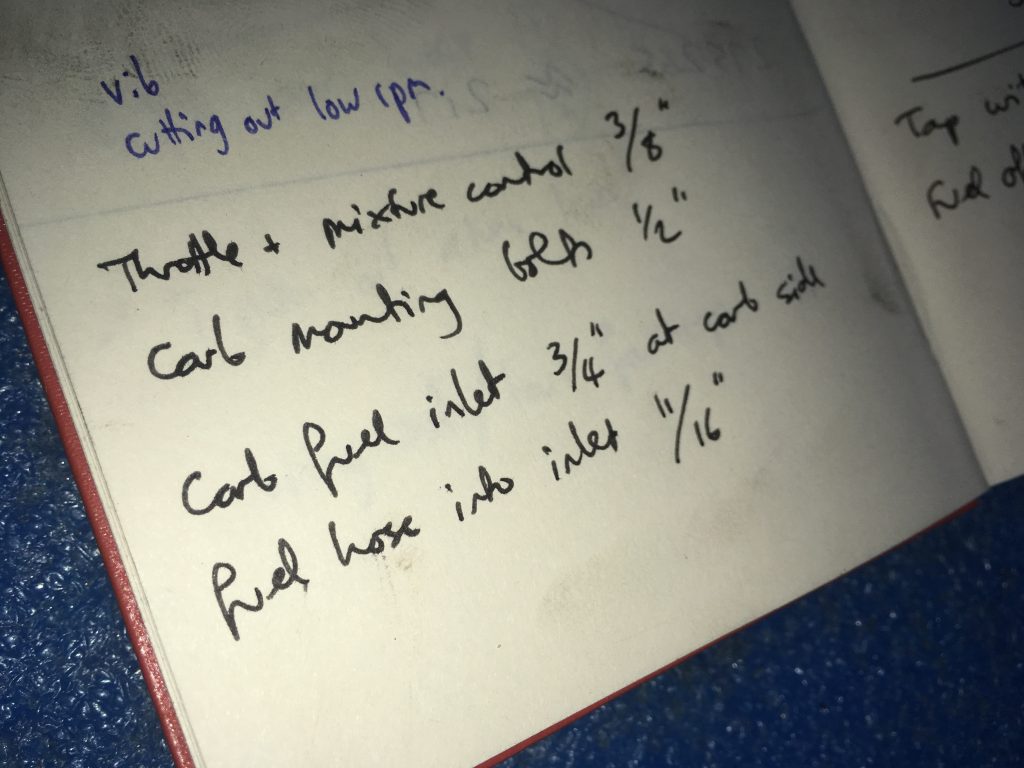 vib
cutting out low rpm.
Throttle + mixture control 3/8"
Carb mounting bolts 1/2"
Carb fuel inlet 3/4" at carb side
fuel hose into inlet 11/16"
Tap
fuel